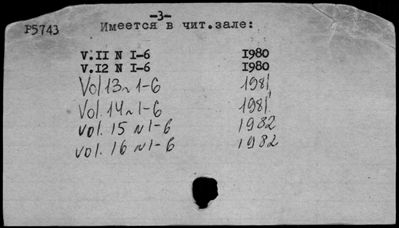 -3-
P5743 Имеется в чит.зале:
V.II N I-6 I980
V.I2 N I-6 I980
Vol 13 N 1-6 1981
Vol. 14 N 1-6 1981
vol. 15 N 1-6 1982
vol. 16 N 1-6 1982